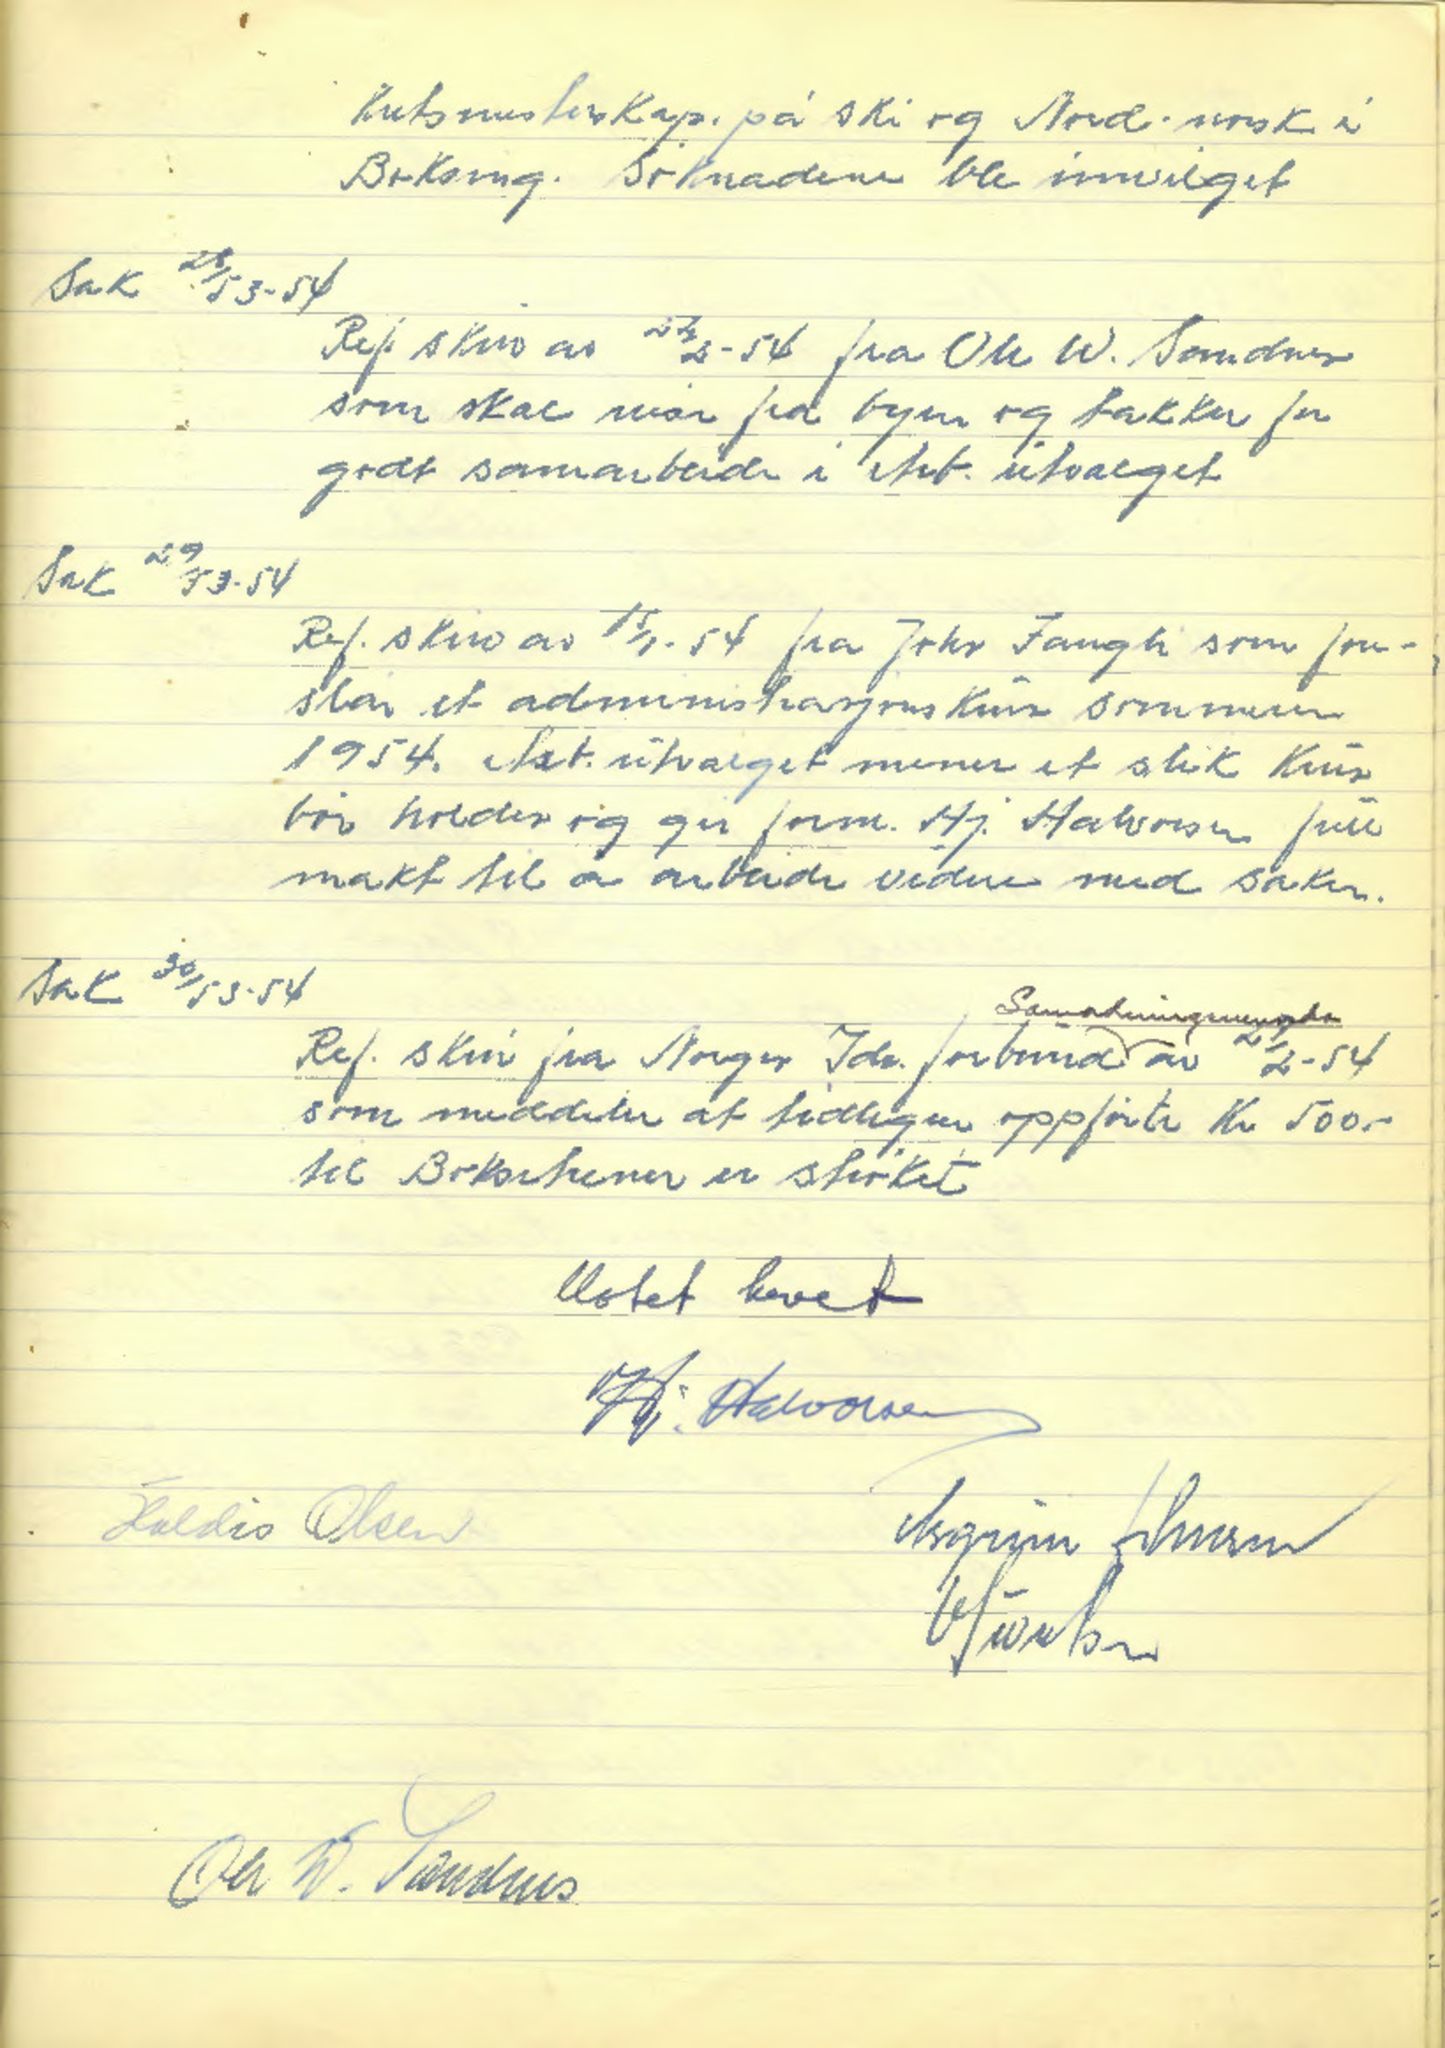 Kretsmesterskap. på ski og Nord-norsk i
Boksing. Søknadene ble innvilget
Sak 28/53-54
Ref. skriv av 22/2-54 fra Ole W. Sandnes
som skal reise fra byen og takker for
godt samarbeide i Arb. utvalget
Sak 29/53-54
Ref. skriv av 15/1-54 fra John Fangli som fore-
slår et administrasjonskurs sommeren
1954. Arb. utvalget mener et slik kurs
bør holdes og gir form. Hj. Halvorsen full
makt til å arbeide videre med saken.
Sak 30/53-54
Samordningsnevnda
Ref. skriv fra Norges Idr. forbund av 21/2-54
som meddeler at tidligere oppførte kr 500.-
til Boksetrener er strøket
Møtet hevet
Hj. Halvorsen
Haldis Olsen
Asgrim
Ole W. Sandnes